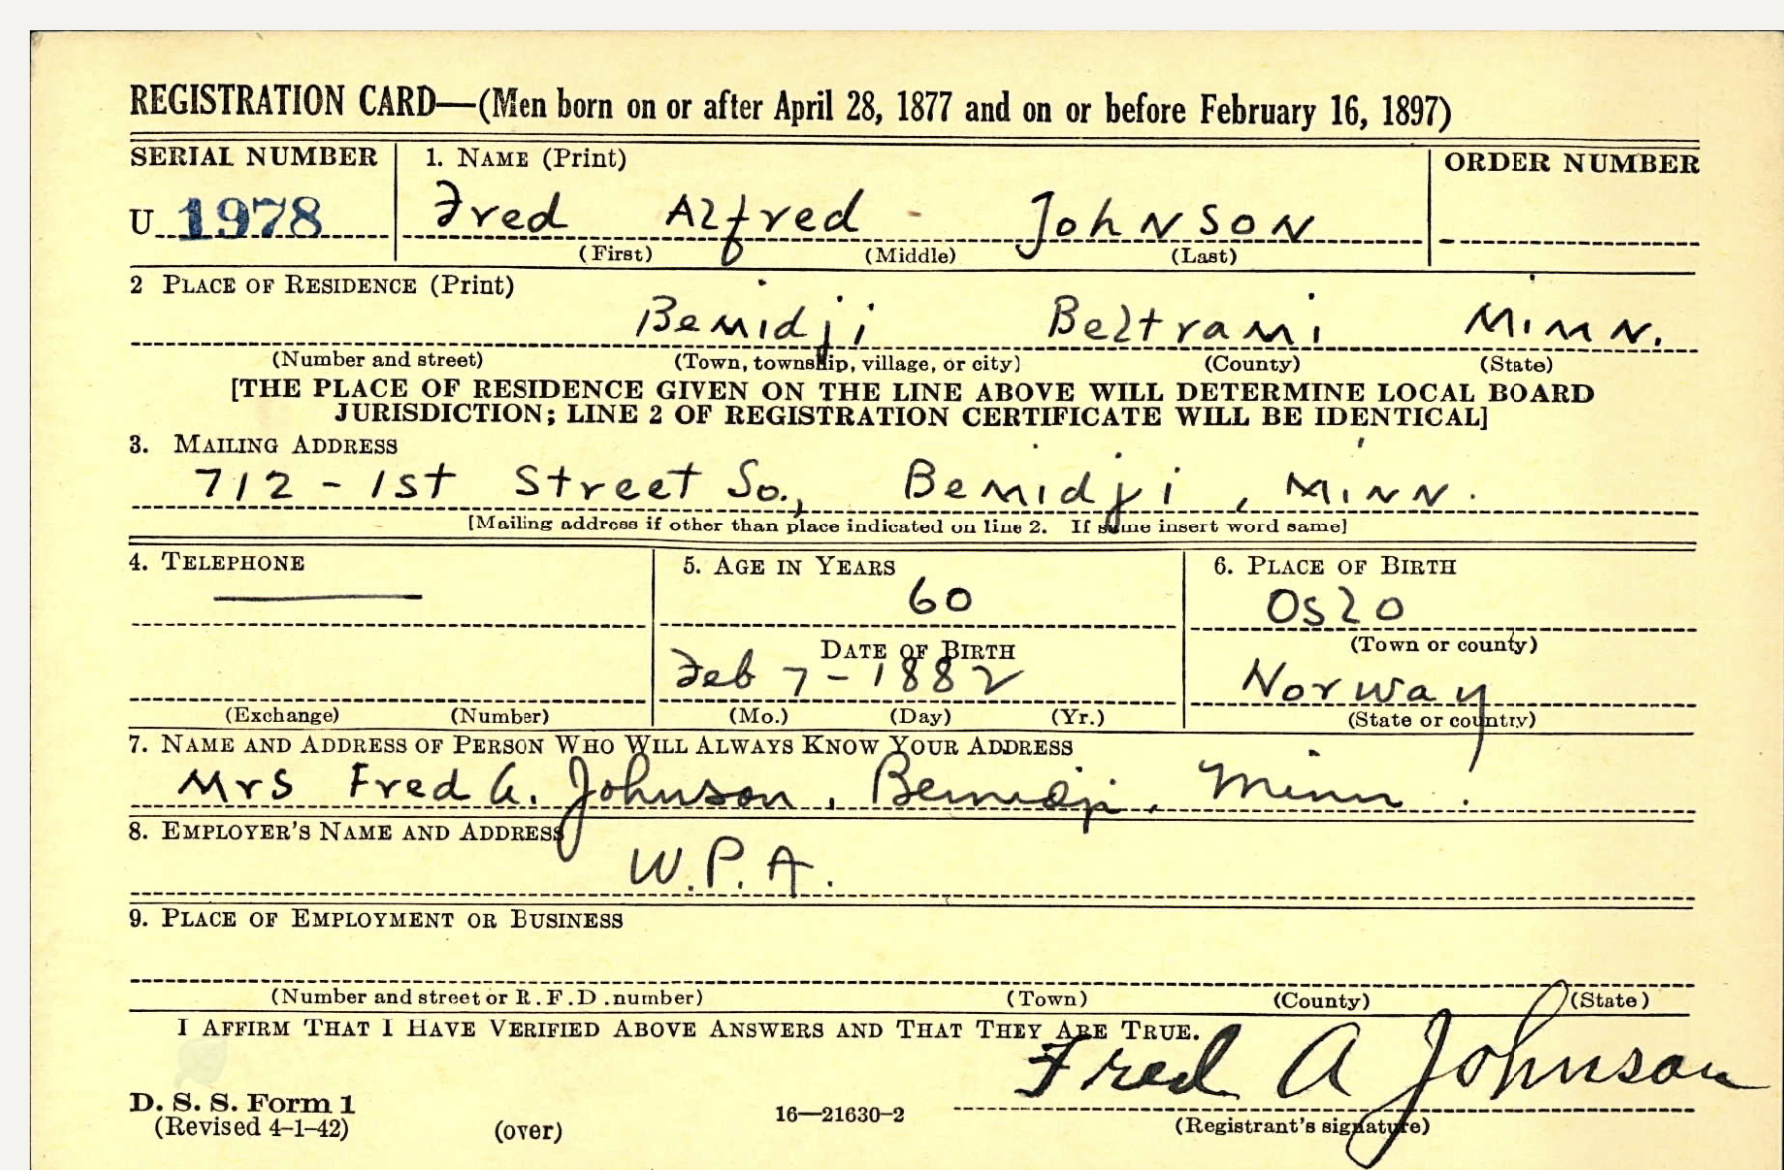 REGISTRATION CARD—(Men born on or after April 28, 1877 and on or before February 16, 1897)
SERIAL NUMBER 1. NAME (Print) ORDER NUMBER
U 1978 Fred Alfred Johnson
(First) (Middle) (Last)
2 PLACE OF RESIDENCE (Print)
Bemidji Beltrami Minn.
(Number and street) (Town, township, village, or city) (County) (State)
[THE PLACE OF RESIDENCE GIVEN ON THE LINE ABOVE WILL DETERMINE LOCAL BOARD
JURISDICTION; LINE 2 OF REGISTRATION CERTIFICATE WILL BE IDENTICAL]
3. MAILING ADDRESS
712 - 1st Street So., Bemidji, Minn.
[Mailing address if other than place indicated on line 2. If same insert word same]
4. TELEPHONE 5. AGE IN YEARS 6. PLACE OF BIRTH
60 Oslo
DATE OF BIRTH (Town or county)
Feb 7 - 1882 Norway
(Exchange) (Number) (Mo.) (Day) (Yr.) (State or country)
7. NAME AND ADDRESS OF PERSON WHO WILL ALWAYS KNOW YOUR ADDRESS
Mrs Fred A. Johnson, Bemidji, Minn.
8. EMPLOYER'S NAME AND ADDRESS
W.P.A.
9. PLACE OF EMPLOYMENT OR BUSINESS
(Number and street or R.F.D. number) (Town) (County) (State)
I AFFIRM THAT I HAVE VERIFIED ABOVE ANSWERS AND THAT THEY ARE TRUE.
Fred A Johnson
D. S. S. Form 1
(Revised 4-1-42) (over) 16—21630-2 (Registrant's signature)